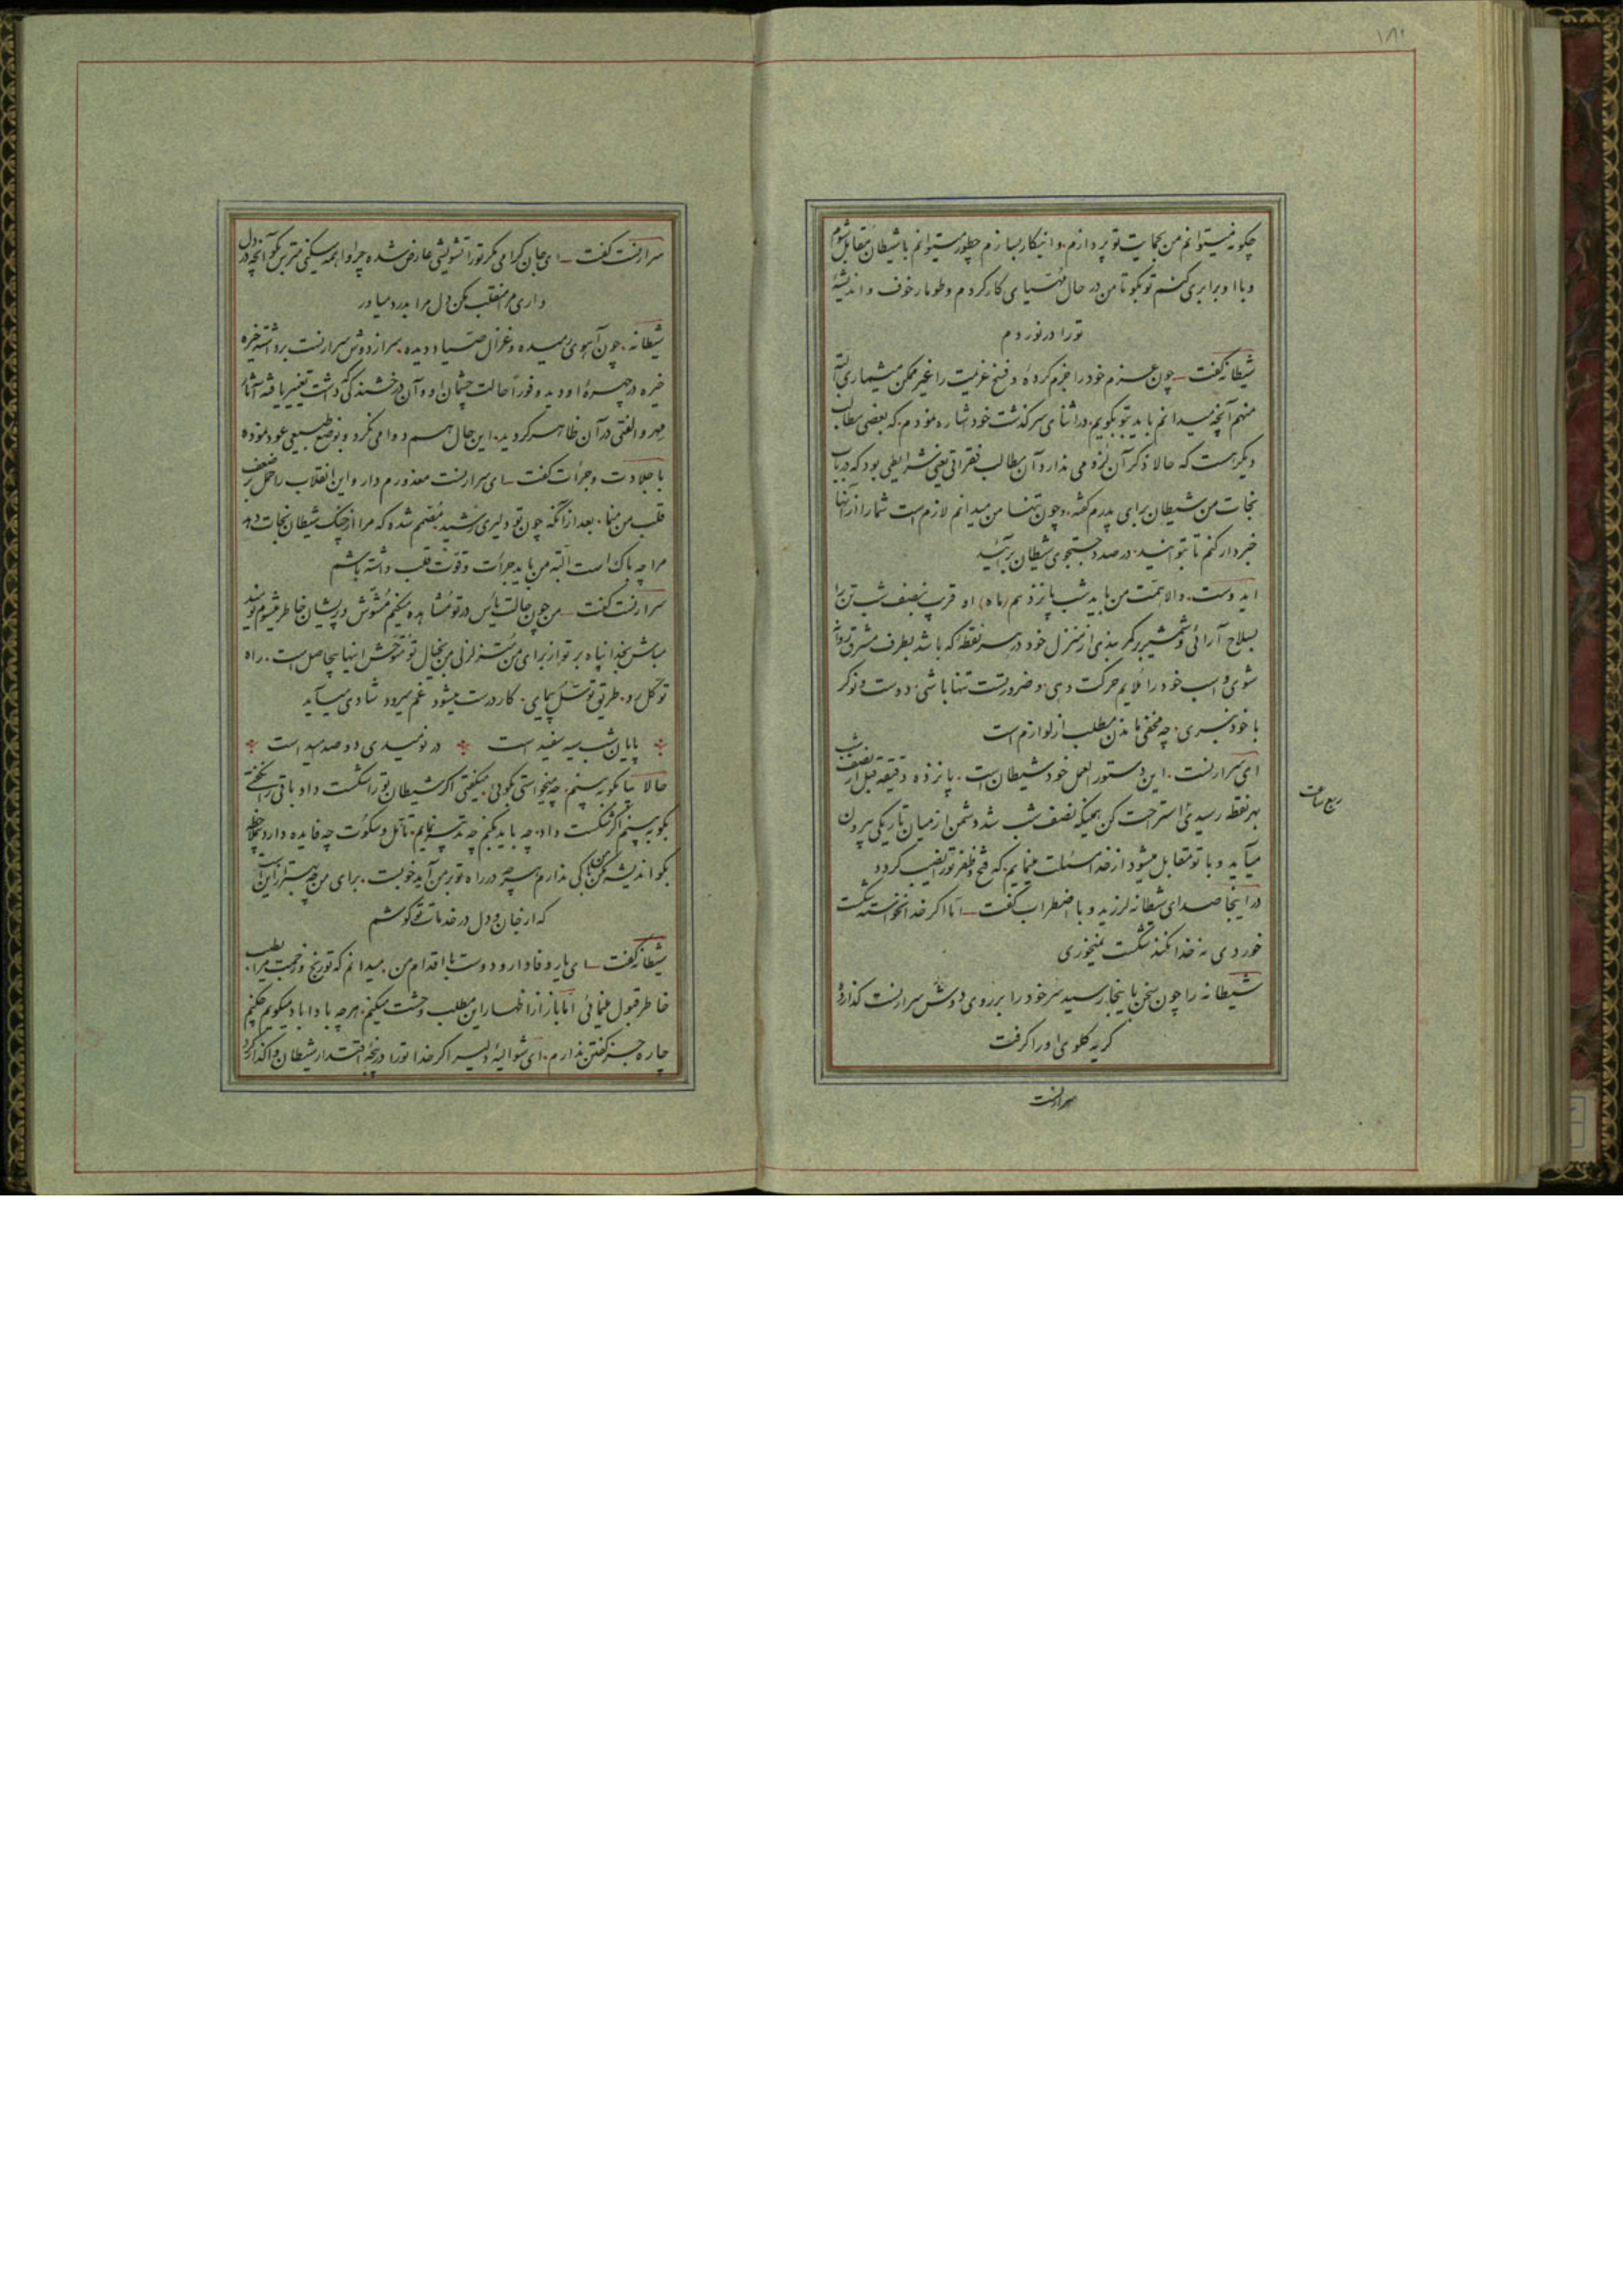 ۱۸۲
چگونه میتوانم من بحمایت تو پردازم و اینکار بسازم چطور میتوانم با شیطان متقابل شوم
و با او برابری کنم تو بگو تا من در حال مهیای کار گردم و طومار خوف و اندیشهٔ
تو را در نوردم
شیطانه گفت چون عزم خود را جزم کردهٔ و فسخ عزیمت را غیر ممکن میشماری البته
منهم آنچه میدانم باید بتو بگویم در اثنای سرگذشت خود اشاره نمودم که بعضی مطالب
دیگر هست که حالا ذکر آن لزومی ندارد آن مطالب فقراتی یعنی شرایطی بود که در باب
نجات من شیطان برای پدرم گفته و چون تنها من میدانم لازم است شما را از آنها
خبردار کنم تا بتوانید در صدد جستجوی شیطان برآئید
ایدوست والا همت من باید شب پانزدهم (ماه) او قریب بنصف شب تن را
بسلاح آرائی و شمشیر بر کمر بندی از منزل خود در هر نقطه که باشد بطرف مشرق روانه
شوی و اسب خود را ملایم حرکت دهی و ضرور است تنها باشی دوست و نوکر
با خود نبری چه مخفی ماندن مطلب از لوازم است
ای سرارنست این دستور العمل خود شیطان است پانزده دقیقه قبل از نصف شب
ربع ساعت
بهر نقطه رسیدی استراحت کن همینکه نصف شب شد دشمن از میان تاریکی بیرون
میآید و با تو متقابل میشود از خدا مسئلت مینمایم که فتح و ظفر تو را نصیب گردد
در اینجا صدای شیطانه لرزید و با اضطراب گفت اما اگر خدا نخواسته شکست
خوردی نه خدا نکند شکست نمیخوری
شیطانه را چون سخن باینجا رسید سر خود را بر روی دوش سرارنست گذارد و
گریه گلوی او را گرفت
سرارنست
سرارنست گفت ای جان گرامی مگر تو را تشویشی عارض شده چرا واهمه میکنی مترس بگو آنچه در دل
داری مرا منقلب مکن دل مرا بدرد میاور
شیطانه چون آهوی رمیده و غزال صیاد دیده سر از دوش سرارنست برداشته خیره
خیره در چهرهٔ او دید و فوراً حالت چشمان او و آن درخشندگی که داشت تغییر یافته آثار
مهر و الفتی در آن ظاهر گردید این حال هم دوامی نکرد و بوضع طبیعی عود نموده
با جلادت و جرأت گفت ای سرارنست معذورم دار و این انقلاب را حمل بر ضعف
قلب من منما بعد از آنکه چون تو دلیری رشید مصمم شده که مرا از چنگ شیطان نجات دهد
مرا چه باک است البته من باید جرأت و قوت قلب داشته باشم
سرارنست گفت من چون حالت یأس در تو مشاهده میکنم مشوش و پریشان خاطر میشوم نومید
مباش بخدا پناه بر تو از برای من متزلزلی من بخیال تو متوحش اینها بیحاصل است راه
توکل رو طریق توسل پیمای کار درست میشود غم میرود شادی میآید
پایان شب سیه سفید است در نومیدی دو صد امید است
حالا بیا بگو ببینم چه میخواستی بگوئی میگفتی اگر شیطان تو را شکست داد باقی را نگفتی
بگو ببینم اگر شکست داد چه باید بکنم چه تدبیر نمایم تأمل و سکوت چه فایده دارد
بگو اندیشه مکن من باکی ندارم هر چه در راه تو بر من آید خوبست برای من چه بهتر از این است
که از جان و دل در خدمات تو کوشم
شیطانه گفت ای یار وفادار و دوست با اقدام من میدانم که تو رنج و زحمت مرا بطیب
خاطر قبول مینمائی اما باز از اظهار این مطلب وحشت میکنم هر چه بادا باد میگویم چکنم
چاره جز گفتن ندارم ای شوالیهٔ دلیر اگر خدا تو را در پنجهٔ اقتدار شیطان واگذارد